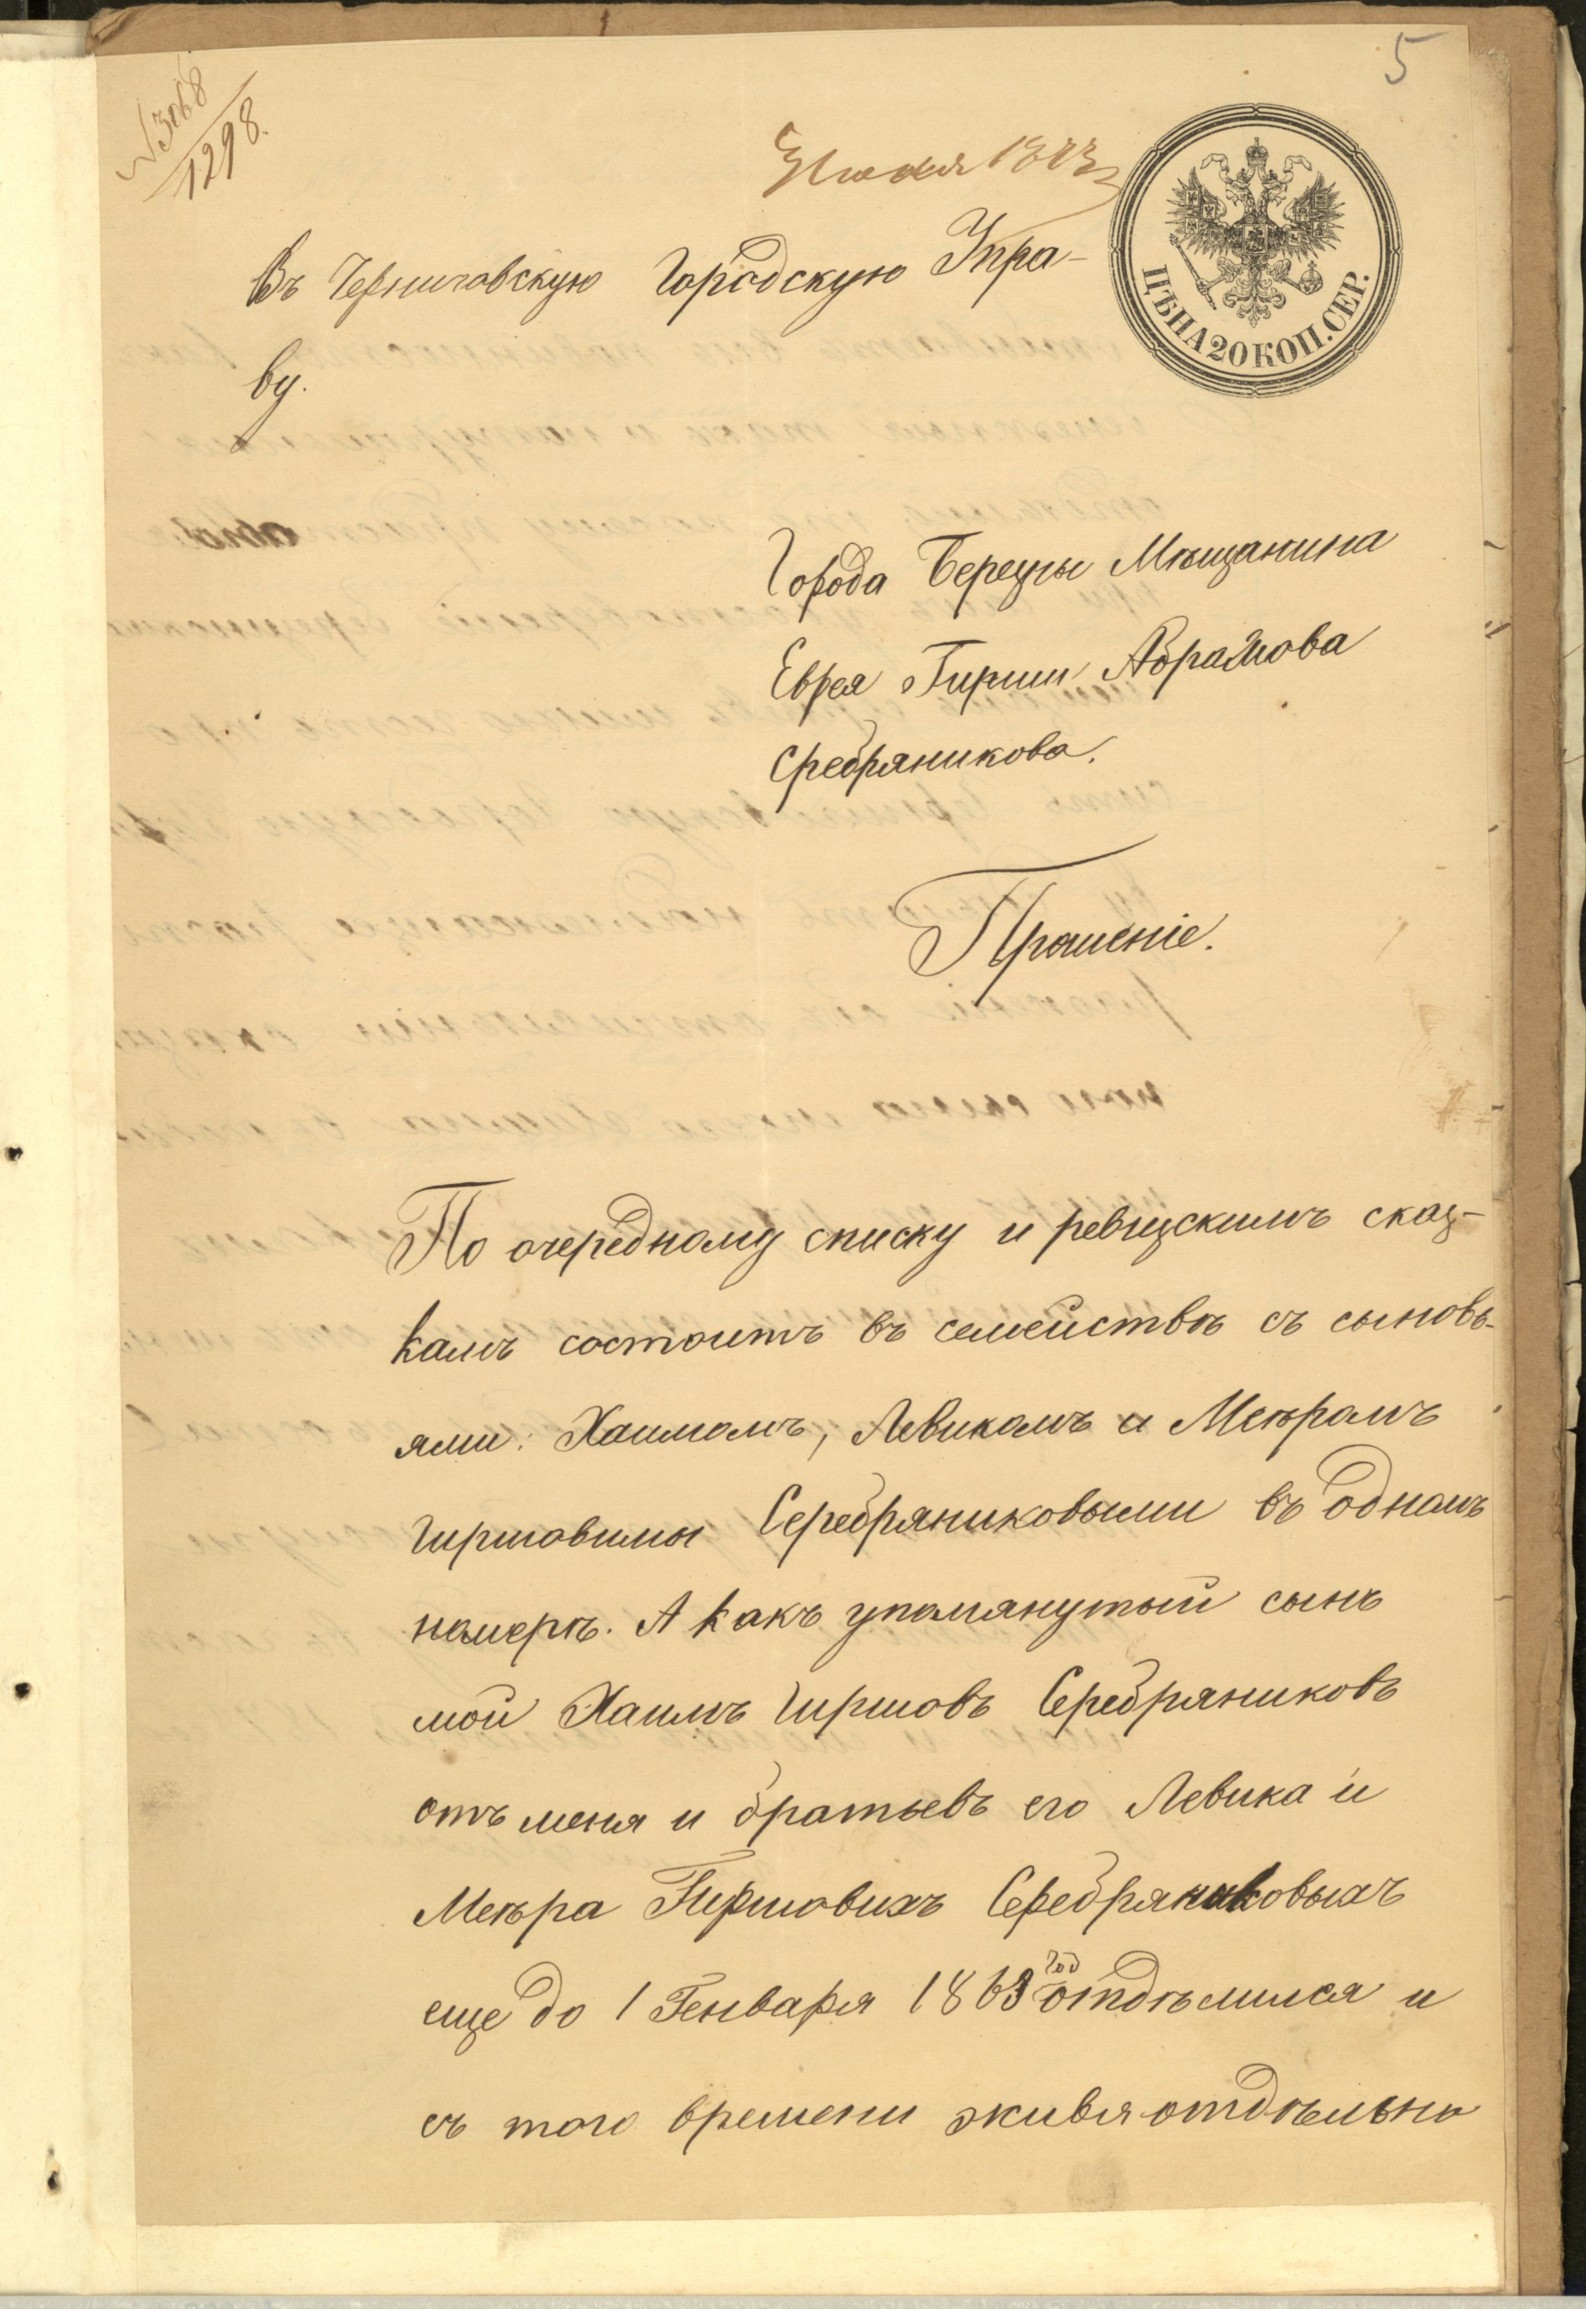 5
№ 3068
1298.
Июня 1873
ЦѢНА 20 КОП. СЕР.
Въ Черниговскую Городскую Упра-
ву.
Города Березны Мѣщанина
Еврея Гирши Абрамова
Сребряникова.
Прошеніе.
По очередному списку и ревизскимъ сказ-
камъ состоитъ въ семействѣ съ сыновь-
ями: Хаимомъ, Левикомъ и Меѣромъ
Гиршовимы Серебряниковыми въ одномъ
номерѣ. А какъ упомянутый сынъ
мой Хаимъ Гиршовъ Серебряниковъ
отъ меня и братьевъ его Левика и
Меѣра Гиршовихъ Серебряниковыхъ
еще до 1 Генваря 1863 год отдѣлился и
съ того времени живя отдѣльно